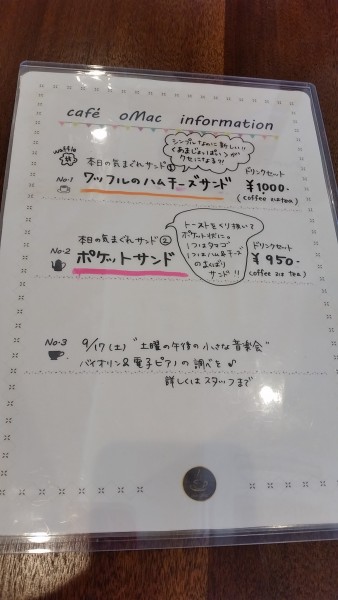 café oMac information
waffle
シンプルなのに新しい!!
くあまじょっぱい>が
クセになる?!
No.1
本日の気まぐれサンド①
ワッフルのハムチーズサンド
ドリンクセット
¥1000.
(coffee or tea)
No.2
本日の気まぐれサンド②
ポケットサンド
トーストをくり抜いて
ポケット状に。
1つはタマゴ
1つはハム&チーズ
のまんぷく
サンド!!
ドリンクセット
¥950.
(coffee or tea)
No.3
9/17(土) "土曜の午後の小さな音楽会"
バイオリン&電子ピアノの調べを♪
詳しくはスタッフまで